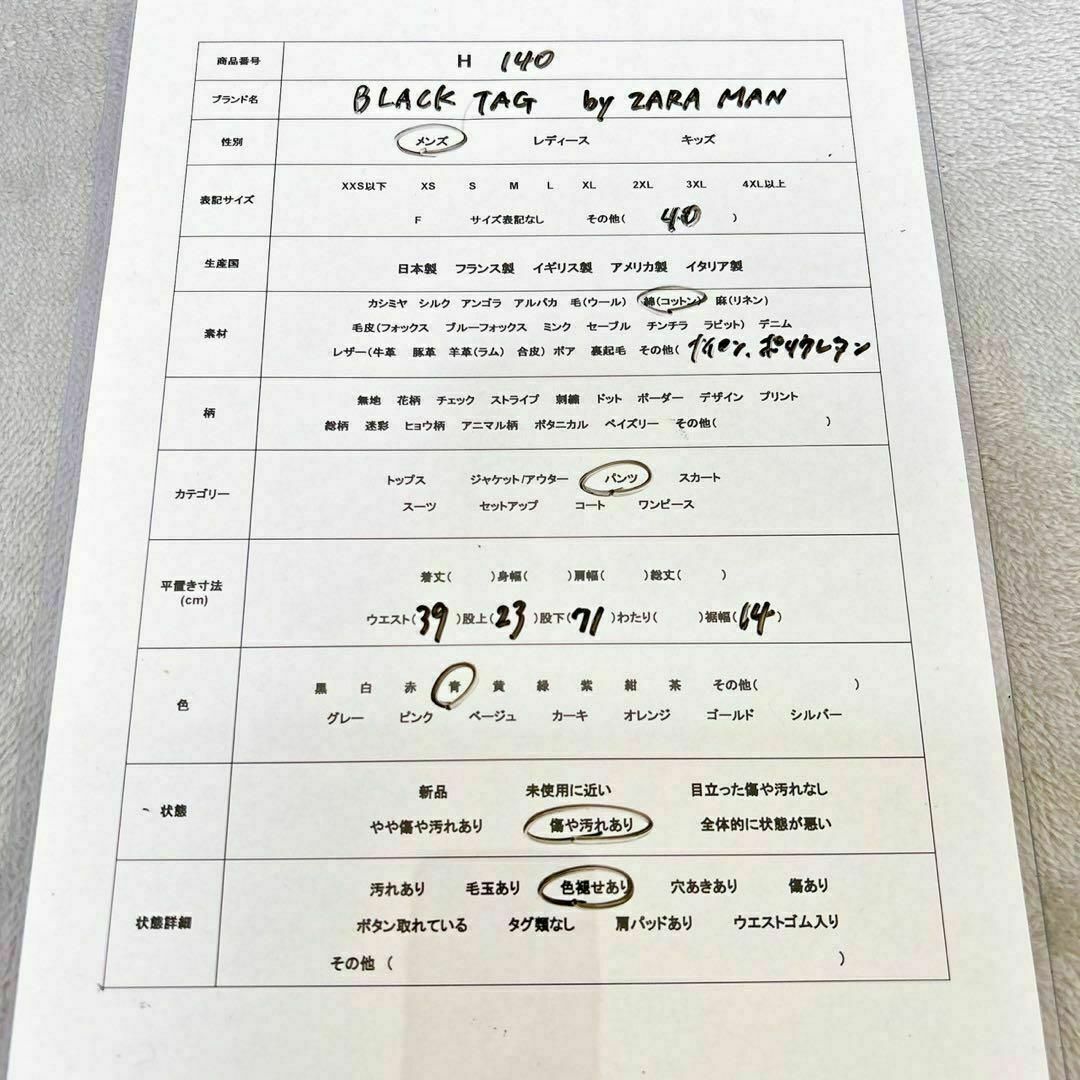 商品番号 H 140
ブランド名 BLACK TAG by ZARA MAN
性別 メンズ レディース キッズ
表記サイズ XXS以下 XS S M L XL 2XL 3XL 4XL以上
F サイズ表記なし その他( 40 )
生産国 日本製 フランス製 イギリス製 アメリカ製 イタリア製
素材 カシミヤ シルク アンゴラ アルパカ 毛(ウール) 綿(コットン) 麻(リネン)
毛皮(フォックス ブルーフォックス ミンク セーブル チンチラ ラビット) デニム
レザー(牛革 豚革 羊革(ラム) 合皮) ボア 裏起毛 その他( ナイロン、ポリウレタン
柄 無地 花柄 チェック ストライプ 刺繍 ドット ボーダー デザイン プリント
総柄 迷彩 ヒョウ柄 アニマル柄 ボタニカル ペイズリー その他( )
カテゴリー トップス ジャケット/アウター パンツ スカート
スーツ セットアップ コート ワンピース
平置き寸法 (cm) 着丈( )身幅( )肩幅( )総丈( )
ウエスト(39)股上(23)股下(71)わたり( )裾幅(14)
色 黒 白 赤 青 黄 緑 紫 紺 茶 その他( )
グレー ピンク ベージュ カーキ オレンジ ゴールド シルバー
状態 新品 未使用に近い 目立った傷や汚れなし
やや傷や汚れあり 傷や汚れあり 全体的に状態が悪い
状態詳細 汚れあり 毛玉あり 色褪せあり 穴あきあり 傷あり
ボタン取れている タグ類なし 肩パッドあり ウエストゴム入り
その他 ( )